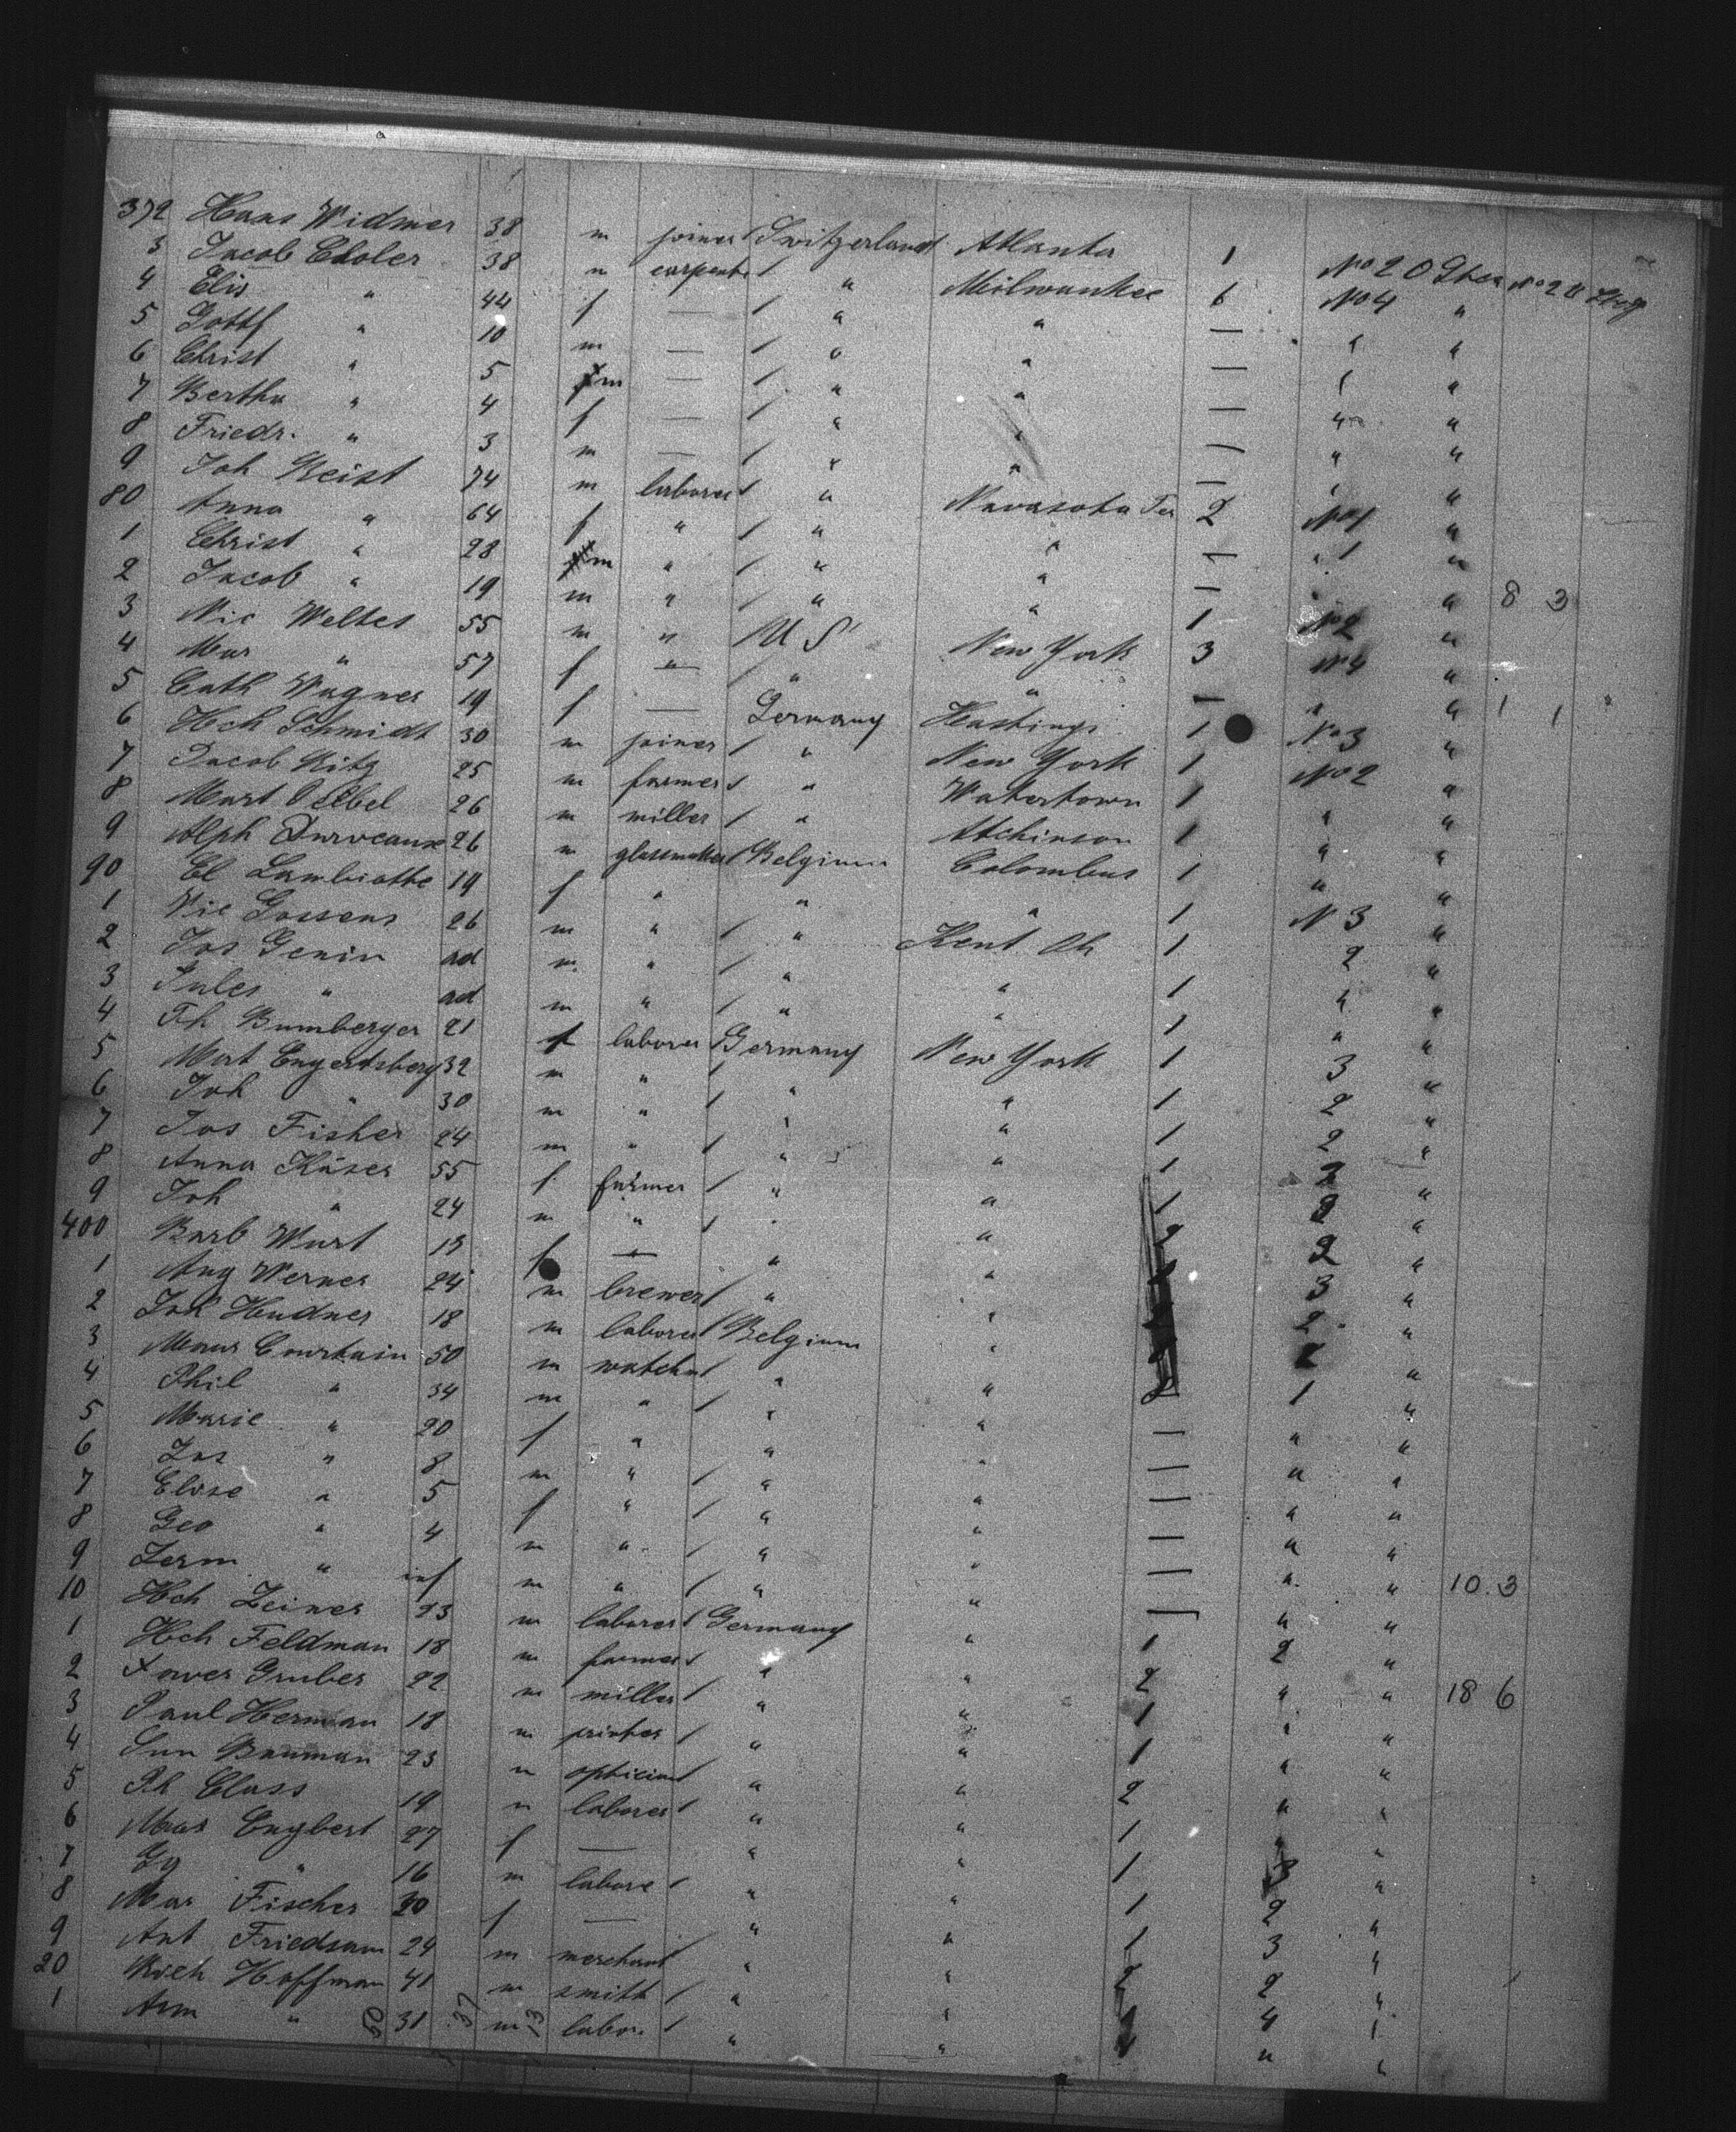 372 Hans Widmer 38 m joiner / Switzerland Atlanta 1 No 2 O Stea No 2 U Stg
3 Jacob Choler 38 " carpenter / " Milwaukee 6 No 4 "
4 Elis " 44 f — / " " — " "
5 Gottf " 10 m — / " " — " "
6 Christ " 5 m — / " " — " "
7 Bertha " 4 f — / " " — " "
8 Friedr. " 3 m — / " " — " "
9 Joh Reist 74 m laborer / " Navasota Tex 2 No 1 "
80 Anna " 64 f " / " " — " 1 "
1 Christ " 28 m " / " " — " 8 3
2 Jacob " 19 m " / " " 1 No 2 "
3 Nic Welter 55 m " / U S New York 3 No 4 "
4 Mar " 57 f " / " " — " " 1 1
5 Cath Wagner 19 f — Germany Hastings 1 No 3 "
6 Hch Schmidt 30 m joiner / " New York 1 No 2 "
7 Jacob Ritz 25 m farmer / " Watertown 1 " "
8 Mart 26 m miller / " Atchinson 1 " "
9 Alph Durveaux 26 m glassmaker / Belgium Colombus 1 " "
90 El Lambiotte 19 f " " " 1 N 3 "
1 Vic Gossens 26 m " / " Kent Oh 1 2 "
2 Jos Genin ad m " / " " 1 " "
3 Jules " ad m " / " " 1 " "
4 Ph Bumberger 21 f laborer / Germany New York 1 3 "
5 Mart Engertsberg 32 m " / " " 1 2 "
6 Joh " 30 m " / " " 1 2 "
7 Jos Fisher 24 m " / " " 1 2 "
8 Anna Käser 55 f farmer / " " 1 2 "
9 Joh " 24 m " / " " 2 2 "
400 Barb Wurt 19 f — " " 3 "
1 Aug Werner 24 m brewer / " " 2 "
2 Joh Hudner 18 m laborer / Belgium " 2 "
3 Maur Courtain 50 m watchm / " " 8 1 "
4 Phil " 34 m " / " " — " "
5 Marie " 20 f " " " — " "
6 Jos " 8 m " / " " — " "
7 Elise " 5 f " / " " — " "
8 Geo " 4 m " / " " — " " 10 3
9 Germ " inf m " / " " — " "
10 Hch Zeiner 23 m laborer / Germany " 1 2 "
1 Hch Feldman 18 m farmer / " " 2 " " 18 6
2 Xaver Gruber 22 m miller / " " 1 " "
3 Paul Herman 18 m printer / " " 1 " "
4 Bauman 23 " optician / " " 2 " "
5 Ph Class 19 " laborer / " " 1 " "
6 Mar Engbert 27 f — " " 1 3 "
7 Gg " 16 m labore / " " 1 2 "
8 Mar Fischer 20 f — " " 1 3 "
9 Ant Friedsam 24 m merchant / " " 2 2 "
20 Rich Hoffman 41 m smith / " " 4 "
1 Arm " 50 31 37 m 13 labor. / " " " "